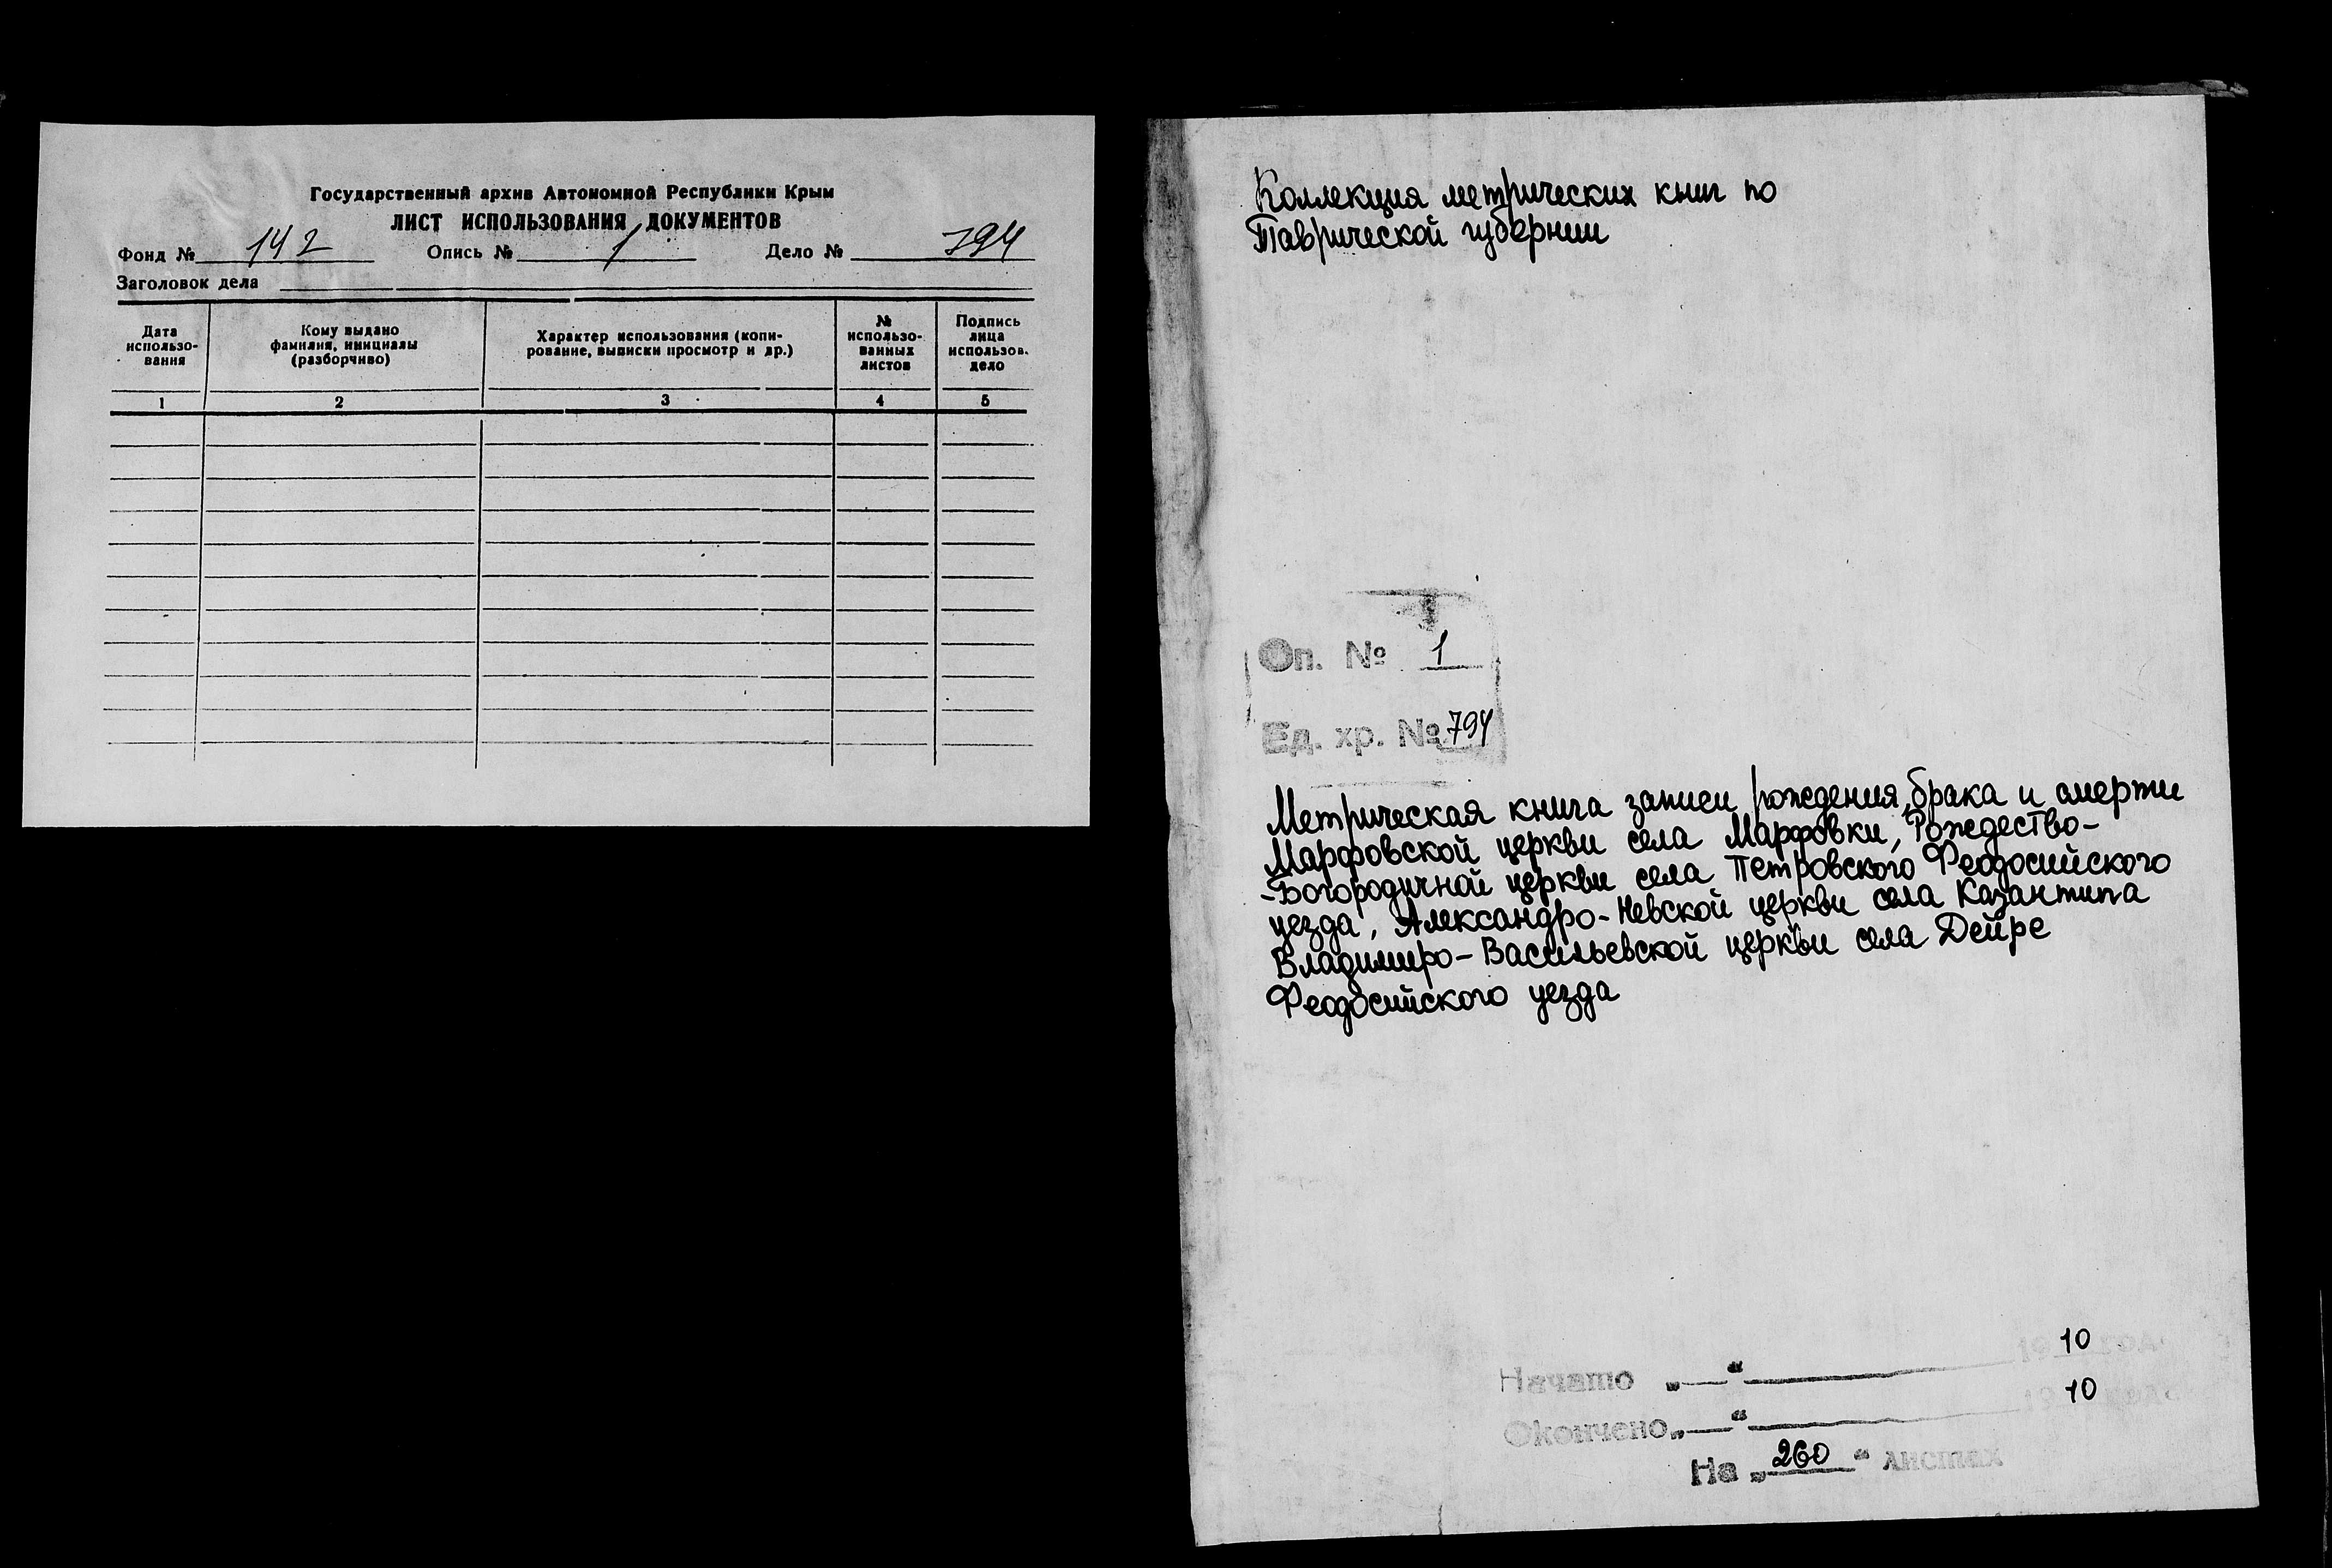 Государственный архив Автономной Республики Крым
ЛИСТ ИСПОЛЬЗОВАНИЯ ДОКУМЕНТОВ
Фонд № 142 Опись № 1 Дело № 794
Заголовок дела
Дата использо-вания
Кому выдано фамилия, инициалы (разборчиво)
Характер использования (копи-рование, выписки просмотр и др.)
№ использо-ванных листов
Подпись лица использов. дело
1 2 3 4 5
Коллекция метрических книг по
Таврической губернии
Оп. № 1
Ед. хр. № 794
Метрическая книга записи рождения, брака и смерти
Марфовской церкви села Марфовки, Рождество-
-Богородичной церкви села Петровского Феодосийского
уезда, Александро-Невской церкви села Казантипа
Владимиро-Васильевской церкви села Дейре
Феодосийского уезда
Начато „ “ 1910 года
Окончено „ “ 1910 года
На „260“ листах